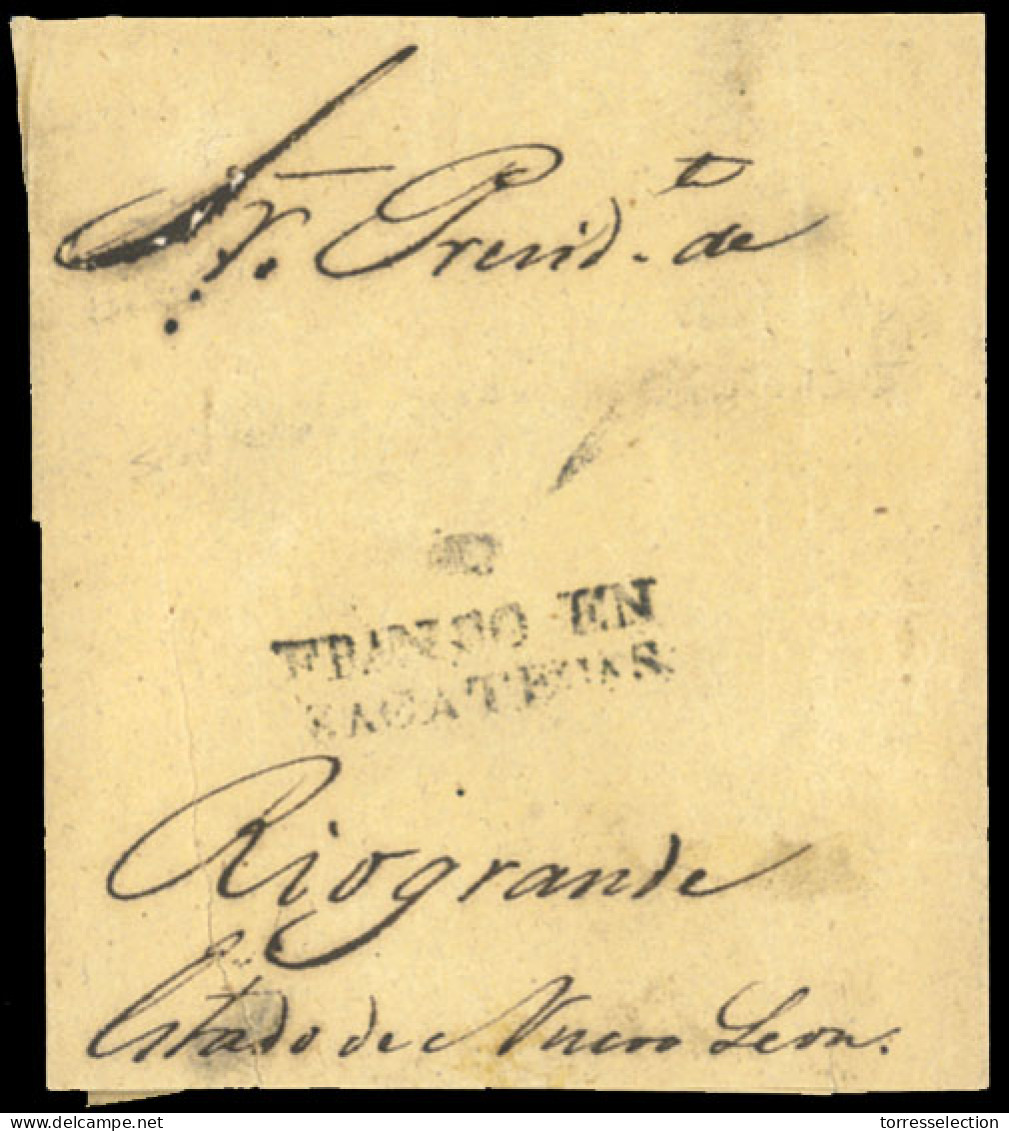 Sr. Presid.te de
FRANCO EN
ZACATECAS
Riogrande
Estado de Nuevo Leon.
delcampe.net
torresselection